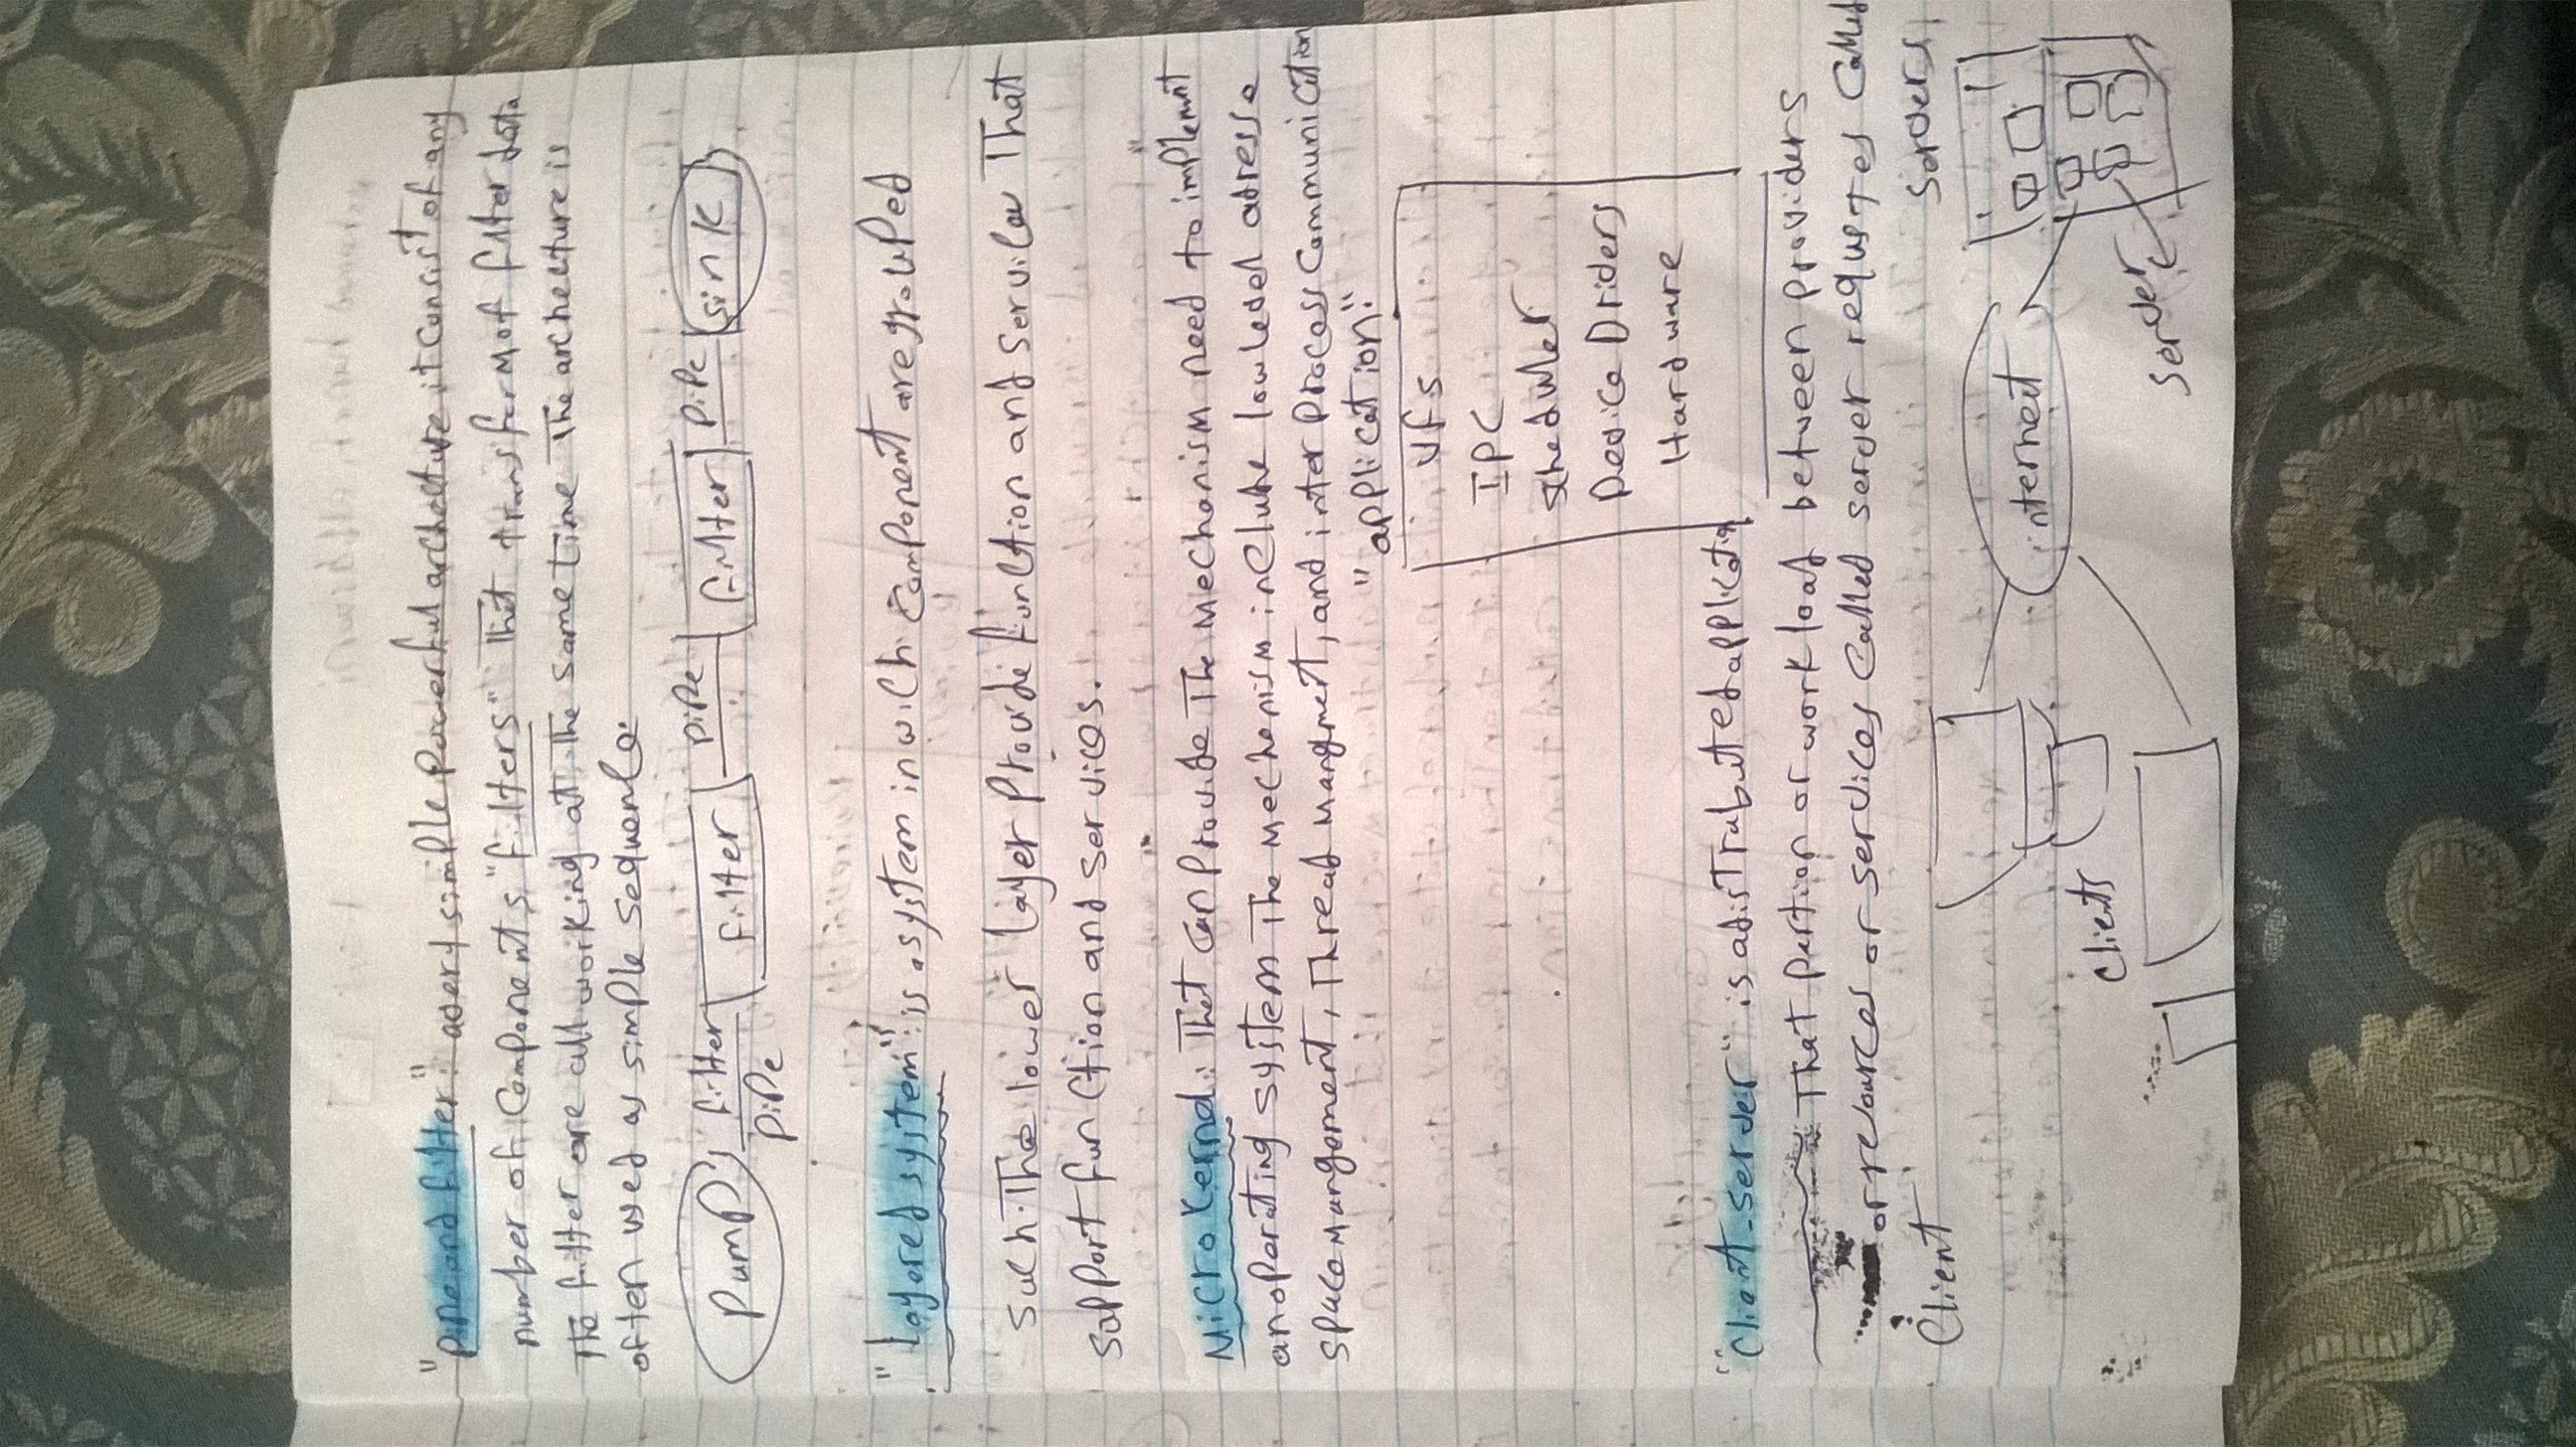 "Pipe and filter": a very simple powerful archecture it consist of any
number of components "filters" That transform of filter data
The filter are all working at The same time The archecture is
often used as simple sequence.
Pump filter pipe filter pipe filter pipe sink
"Layered system": is a system in wich component are grouped
such The lower layer Provide function and service That
support function and services.
Micro Kernel: That can Provide The Mechanism need to implement
an operating system The Mechanism include low level adress
space Mangement, Thread Mangment, and inter Process Communication
"application:"
VFS
IPC
scheduler
Device Drivers
Hardware
"Client-server" is a distrabuted application
That partion or workload between providers
or resources or services called server requstes called
Client
Servers
internet
Clients
Server